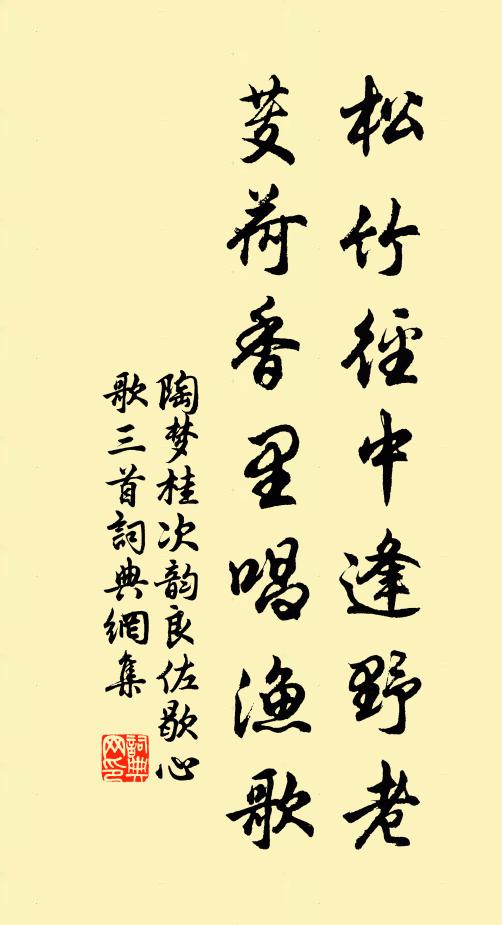 松竹径中逢野老
芰荷香里唱渔歌
陶梦桂次韵良佐歇心
歌三首詞典網集
詞典網印